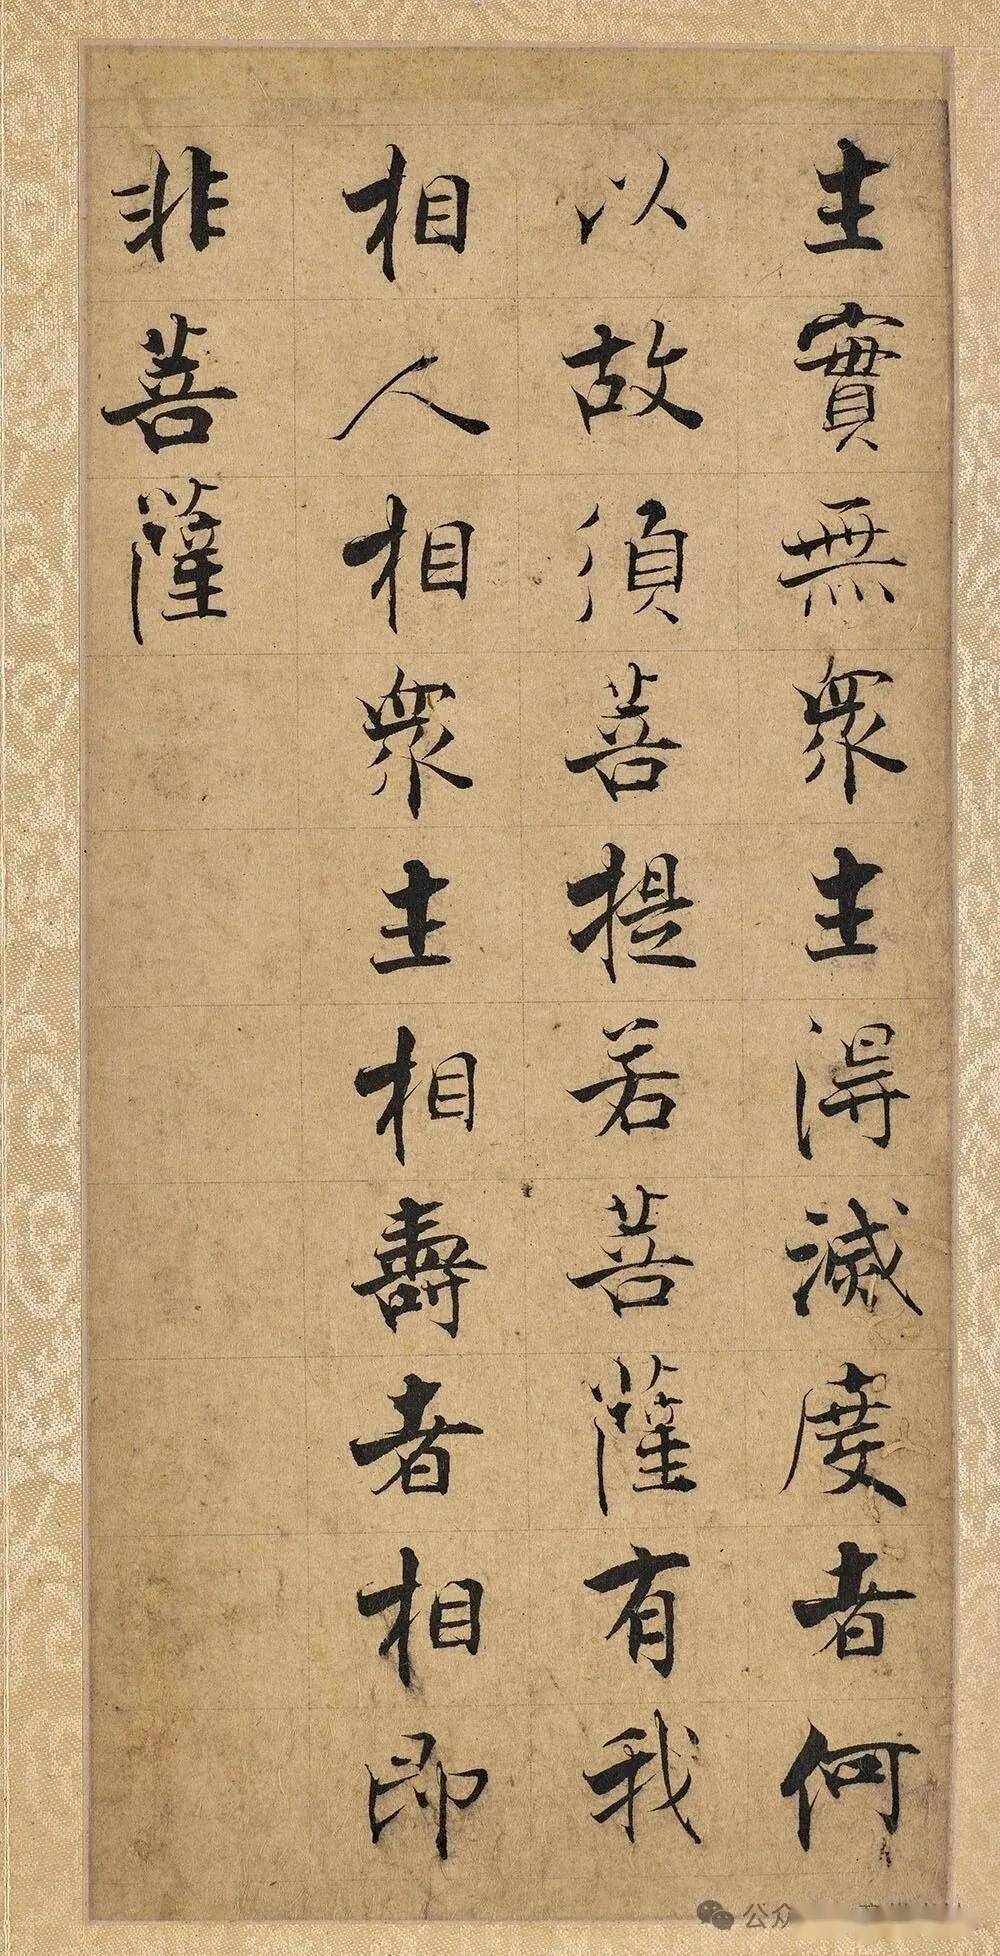 生實無衆生得滅度者何
以故須菩提若菩薩有我
相人相衆生相壽者相即
非菩薩
公众